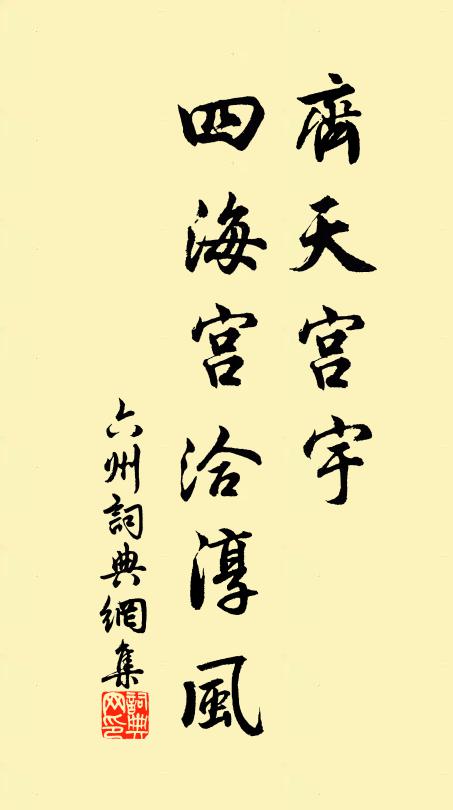 齊天宮宇
四海宮洽淳風
六州詞典網集
詞典
网印